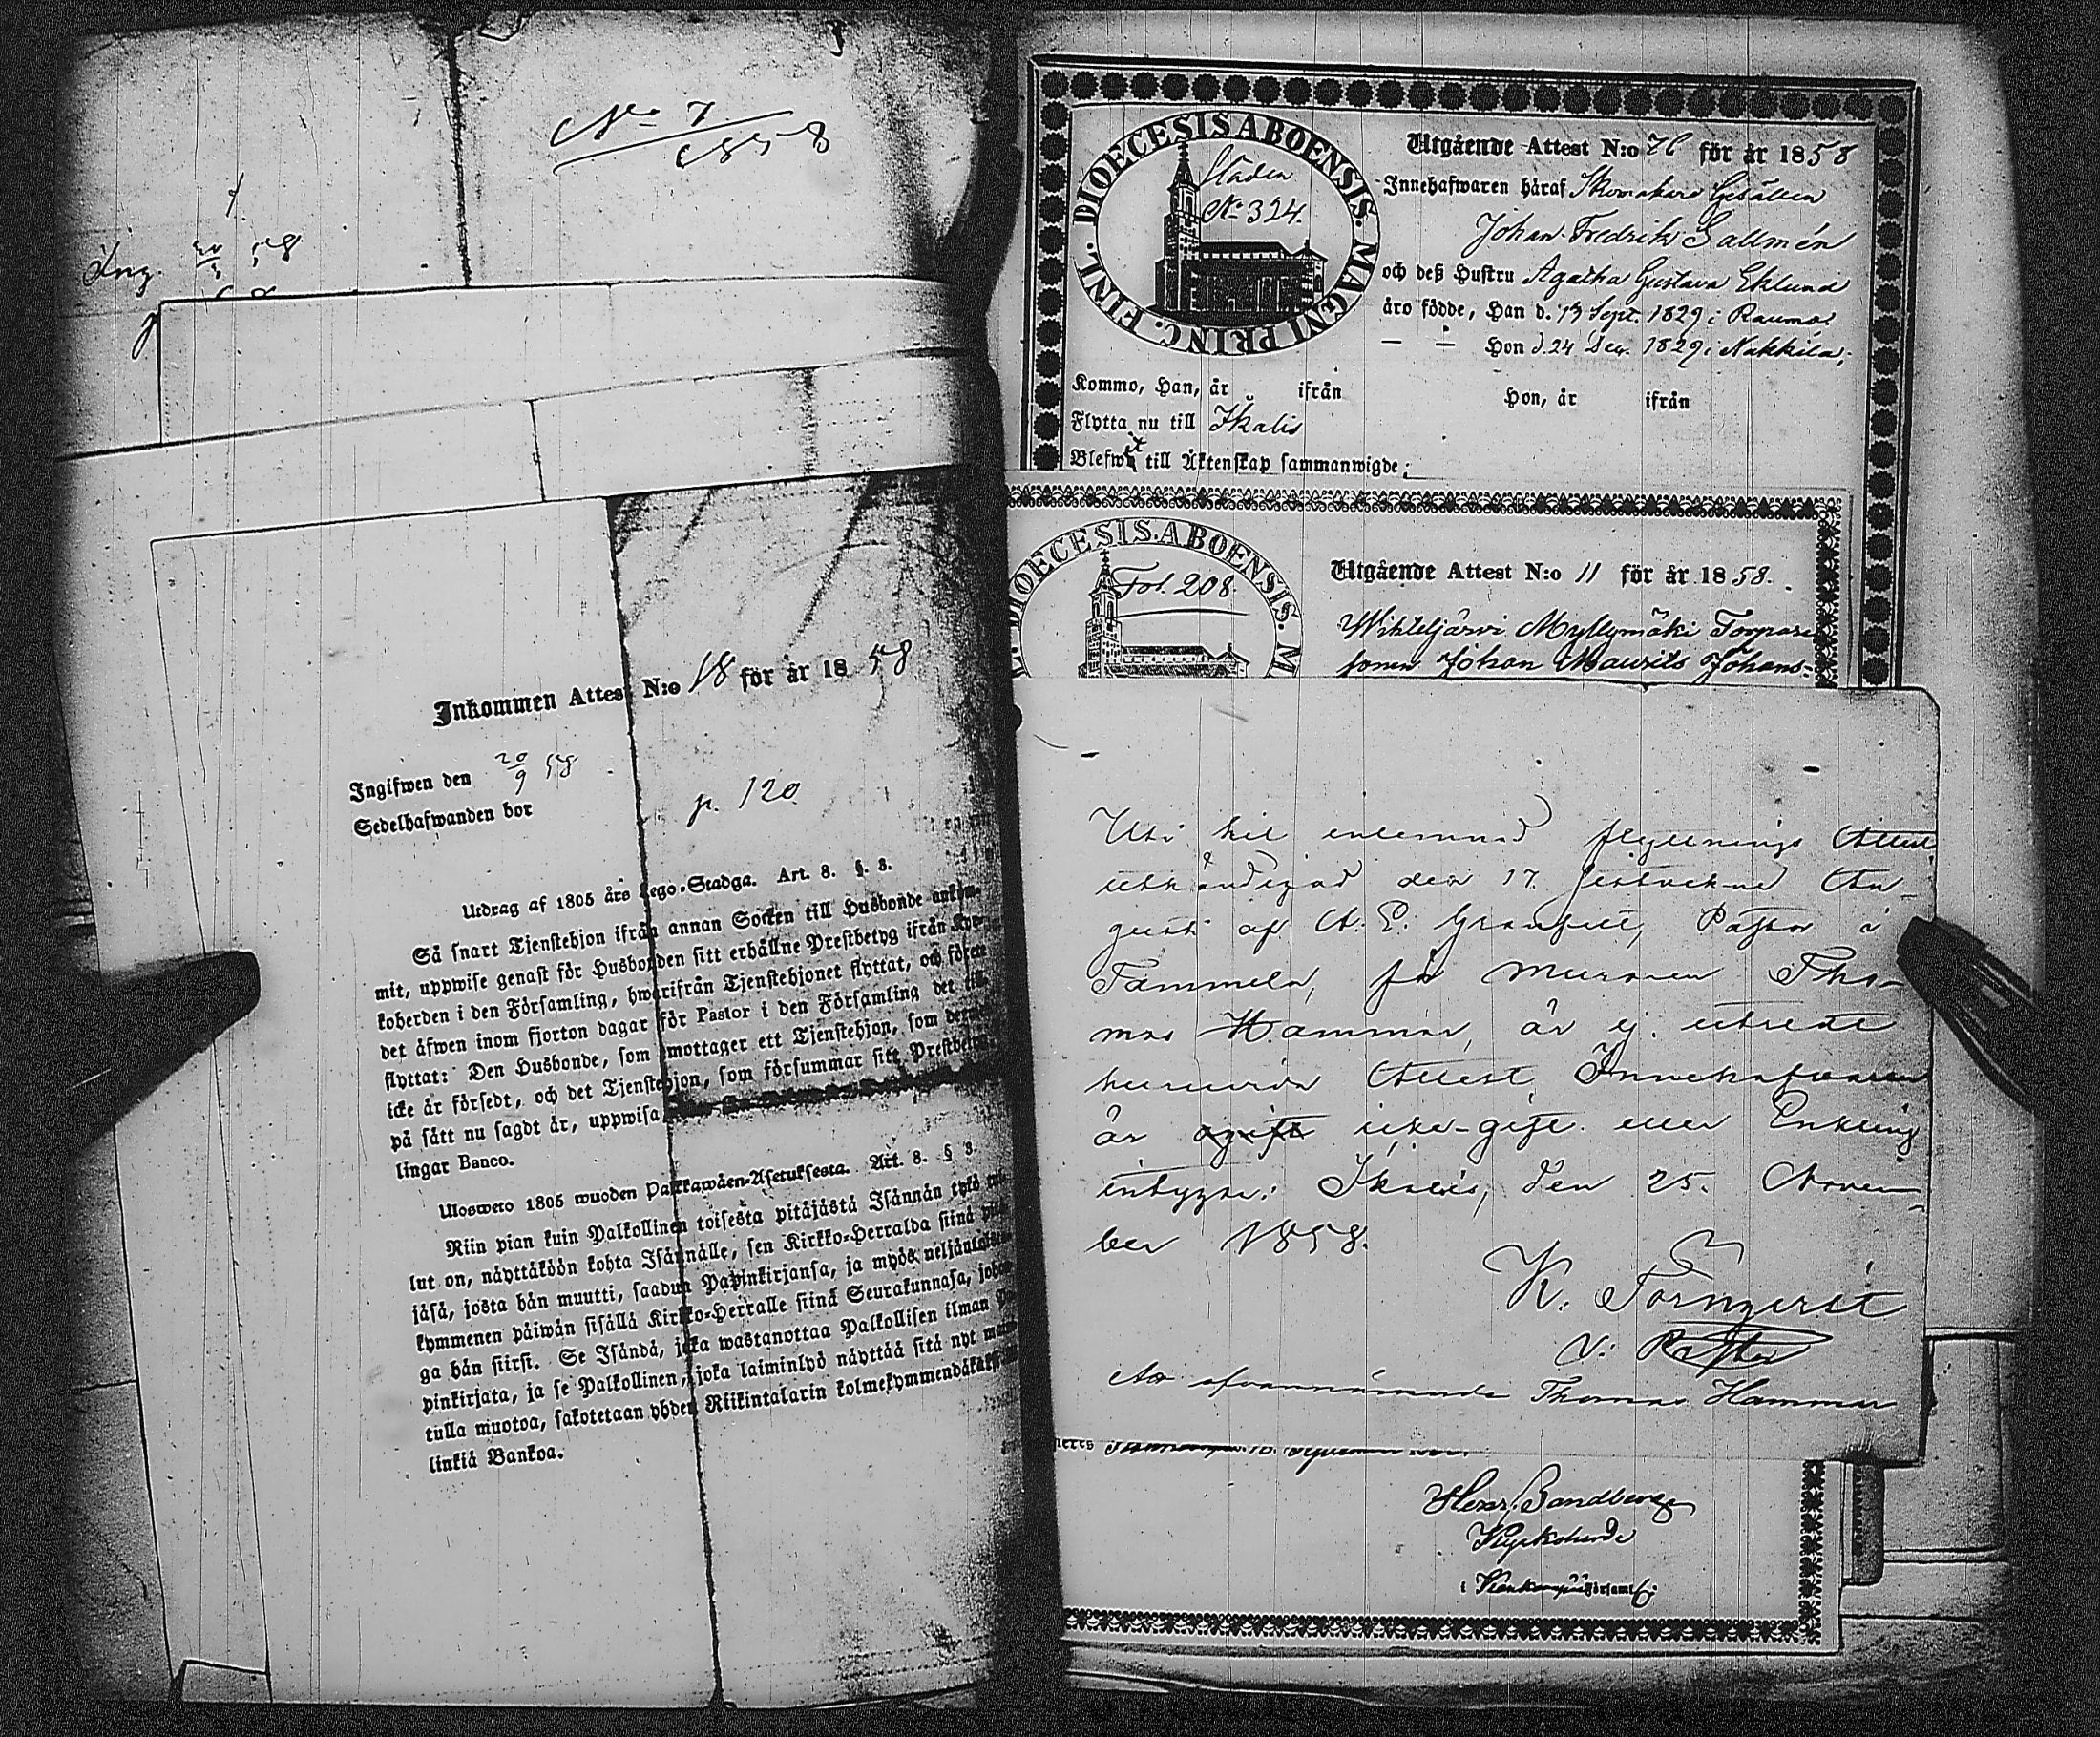 No 7
1858
7.
Ing. 20/3 58
Inkommen Attest N:o 18 för år 1858
Ingifwen den 20/9 58
Sedelhafwanden bor
p. 120.
Utdrag af 1805 års Lego-Stadga. Art. 8. §. 3.
Så snart Tjenstehjon ifrån annan Socken till Husbonde ankom-
mit, uppwise genast för Husbonden sitt erhållne Prestbetyg ifrån Kyr-
koherden i den Församling, hwarifrån Tjenstehjonet flyttat, och förete
det åfwen inom fjorton dagar för Pastor i den Församling det till
flyttat: Den Husbonde, som emottager ett Tjenstehjon, som dermed
icke är försedt, och det Tjenstehjon, som försummar sitt Prestbetyg,
på sått nu sagdt år, uppwisa
lingar Banco.
Ulosweto 1805 wuoden Palkkawåen-Asetuksesta. Art. 8. § 3.
Niin pian kuin Palkollinen toisesta pitåjåstå Isånnån tykö tul-
lut on, nåyttåköön kohta Isånnålle, sen Kirkko-Herralda siinå pitå-
jåså, josta hån muutti, saadun Papinkirjansa, ja myös neljåntoista-
kymmenen påiwån sisållå Kirkko-Herralle siinå Seurakunnasa, johon-
ga hån siirsi. Se Isåndå, joka wastanottaa Palkollisen ilman Pa-
pinkirjata, ja se Palkollinen, joka laiminlyö nåyttåå sitå nyt mai-
tulla muotoa, sakotetaan yhden Riikintalarin kolmekymmendåkåksi
linkiå Bankoa.
DIOECESIS ABOENSIS. MAGNI PRINC. FINL.
Staden
No 324.
Utgående Attest N:o 76 för år 1858
Innehafwaren håraf Skomakare Gesällen
Johan Fredrik Sallmén
och deß Hustru Agatha Gustava Eklund
åro födde, Han d. 13 Sept. 1829 i Raumo.
— — Hon d. 24 Dec. 1829 i Nakkila.
Kommo, Han, år ifrån Hon, år ifrån
Flytta nu till Ikalis
Blefwo till Äktenskap sammanwigde;
DIOECESIS ABOENSIS. M
Fol. 208.
Utgående Attest N:o 11 för år 1858.
Myllymäki Torpare
sonen Johan Maurits Johans-
Uti hit inlemnad flyttnings Attest,
uthändigad den 17. sistvekne Au-
gusti af A. E. Granfelt, Pastor i
Tammela, för Muraren Tho-
mas Hammar, är ej utredt
huruvida Attest Innehafvaren
är ogift icke-gift eller Enkling
intygar: Ikalis, den 25. Novem-
ber 1858.
K. Törnqvist
V: Pastor
Thomas Hammar
Henr. Sandberg
Kyrkoherde